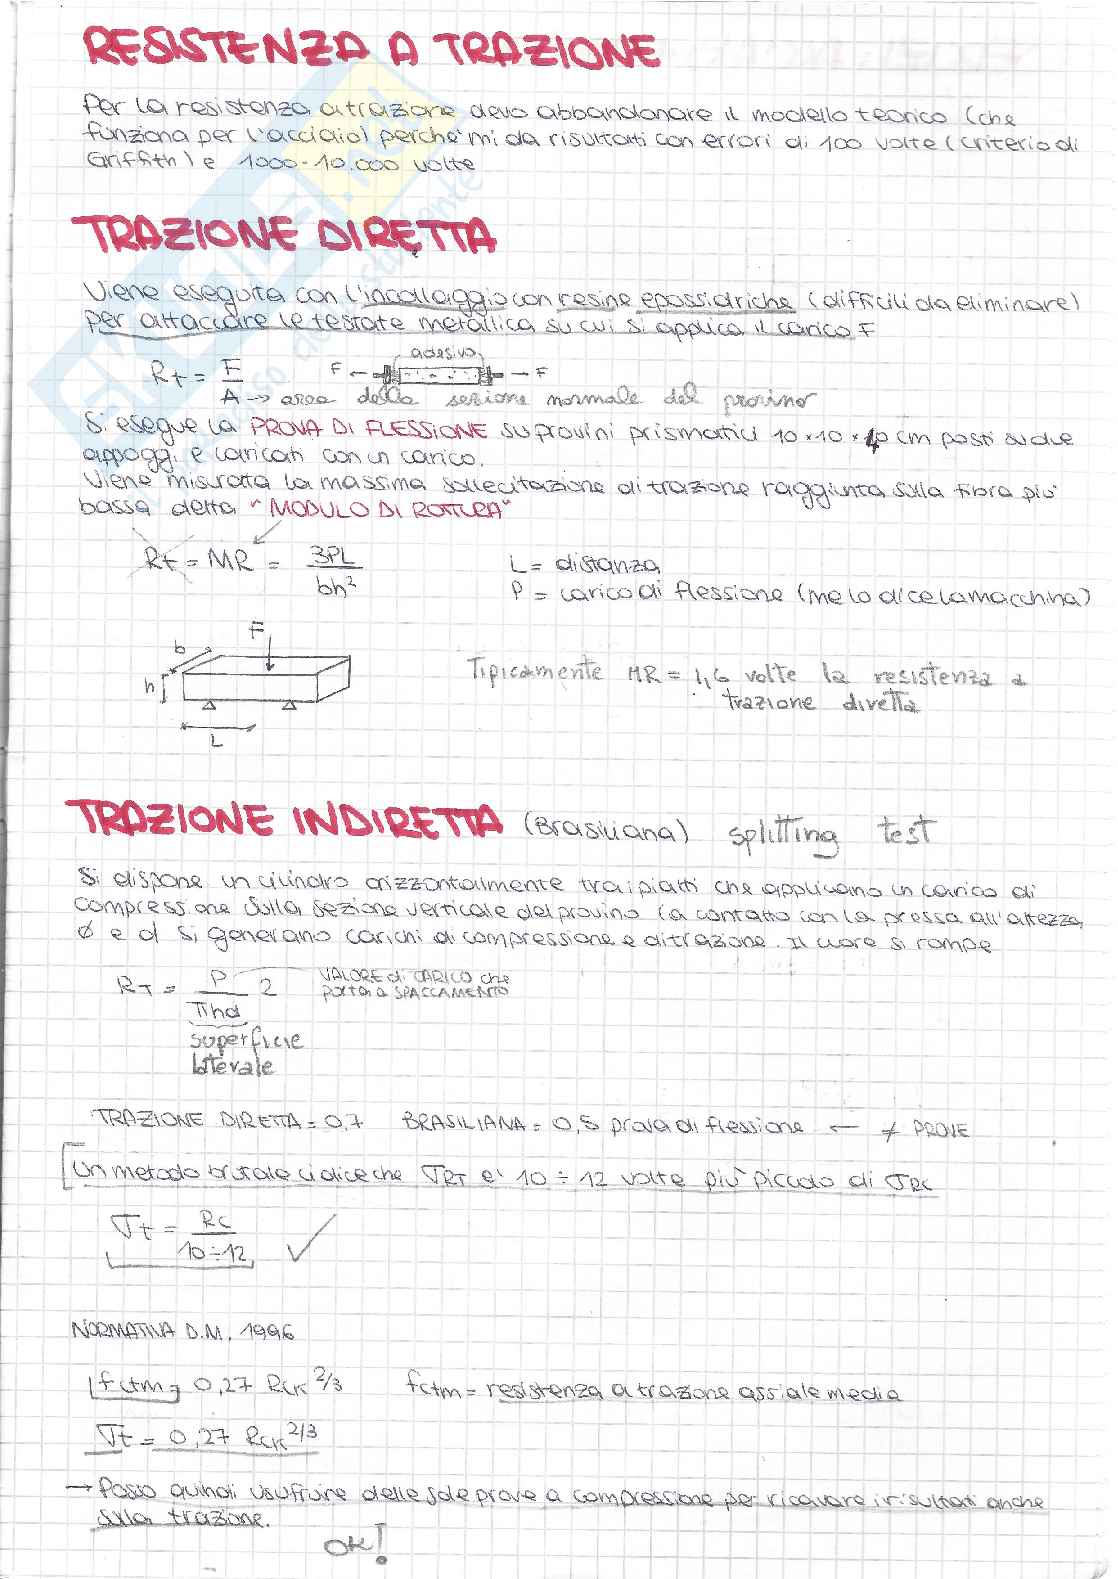 RESISTENZA A TRAZIONE
Per la resistenza a trazione devo abbandonare il modello teorico (che
funziona per l'acciaio) perchè mi da risultati con errori di 100 volte (criterio di
Griffith) e 1000-10.000 volte
TRAZIONE DIRETTA
Viene eseguita con l'incollaggio con resine epossidriche (difficili da eliminare)
per attaccare le testate metallica su cui si applica il carico F
Rt = F/A → area della sezione normale del provino
F ← adesivo → F
Si esegue la PROVA DI FLESSIONE su provini prismatici 10×10×40 cm posti su due
appoggi e caricati con un carico.
Viene misurata la massima sollecitazione di trazione raggiunta sulla fibra più
bassa detta "MODULO DI ROTTURA"
Rt = MR = 3PL/bh²
L = distanza
P = carico di flessione (me lo dice la macchina)
F
b
h
L
Tipicamente MR = 1,6 volte la resistenza a
trazione diretta
TRAZIONE INDIRETTA (Brasiliana) splitting test
Si dispone un cilindro orizzontalmente tra i piatti che applicano un carico di
compressione sulla sezione verticale del provino (a contatto con la pressa all'altezza,
Ø e d si generano carichi di compressione e di trazione. Il cuore si rompe
RT = P/πhd 2
VALORE di CARICO che
porta a SPACCAMENTO
superficie
laterale
TRAZIONE DIRETTA = 0,7 BRASILIANA = 0,5 prova di flessione ← ≠ PROVE
Un metodo brutale ci dice che σRT e' 10 ÷ 12 volte più piccolo di σRC
σt = Rc/10÷12 ✓
NORMATIVA D.M. 1996
fctm = 0,27 Rck^2/3
fctm = resistenza a trazione assiale media
σt = 0,27 Rck^2/3
→ Posso quindi usufruire delle sole prove a compressione per ricavare i risultati anche
sulla trazione.
OK!